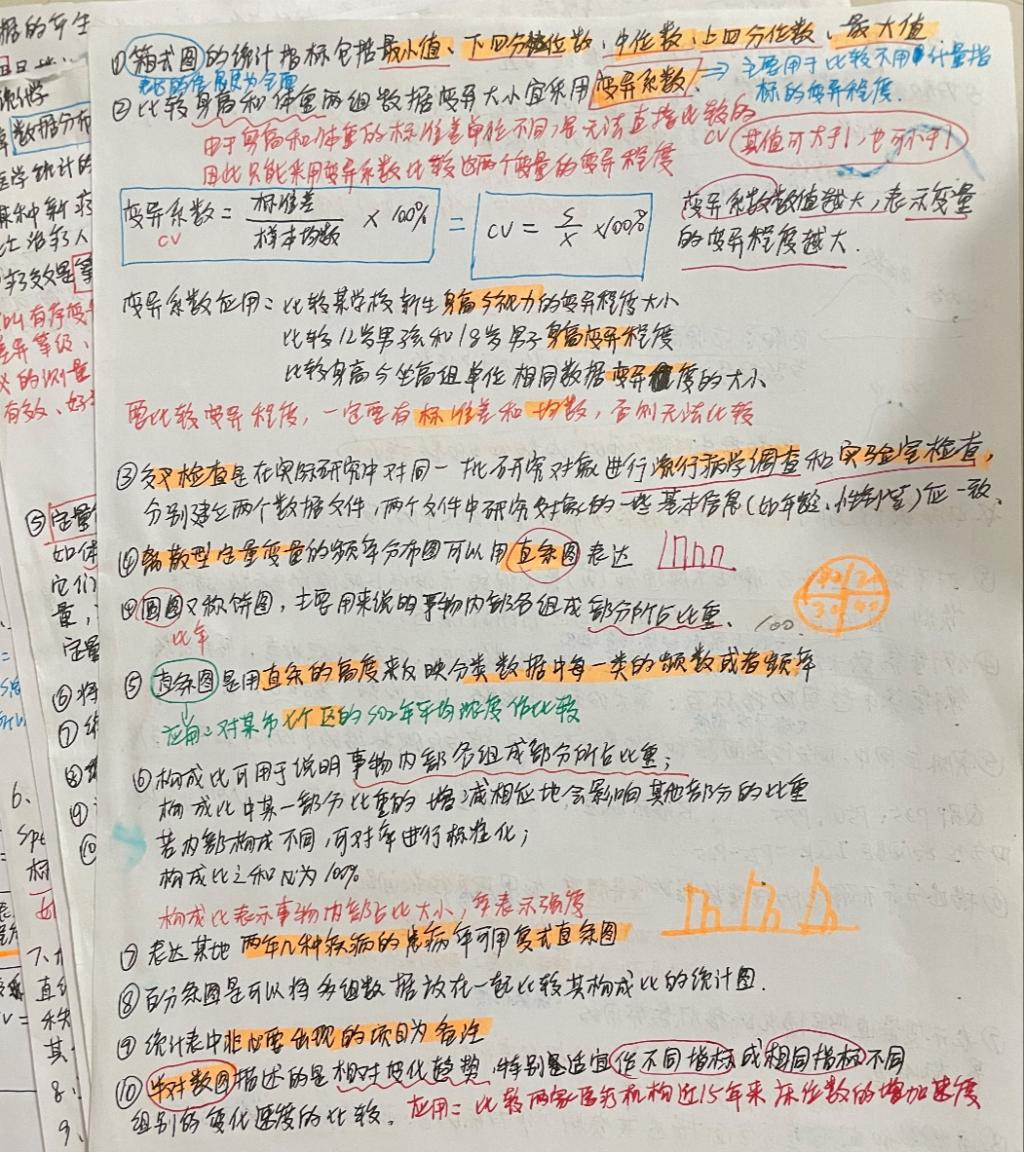 ①箱式图的统计指标包括最小值、下四分位数、中位数、上四分位数、最大值
②比较身高和体重两组数据变异大小宜采用变异系数! ⇒ 主要用于比较不同计量指
标的变异程度.
由于身高和体重的标准差单位不同,是无法直接比较的
因此只能采用变异系数比较这两个变量的变异程度
CV 其值可大于1,也可小于1
变异系数 = 标准差/样本均数 × 100% = CV = S/X ×100%
CV
变异系数数值越大,表示变量
的变异程度越大.
变异系数应用:比较某学校新生身高与视力的变异程度大小
比较12岁男孩和18岁男子身高变异程度
比较身高与坐高组单位相同数据变异程度的大小
要比较变异程度,一定要有标准差和均数,否则无法比较
③交叉检查是在实际研究中对同一批研究对象进行流行病学调查和实验室检查,
分别建立两个数据文件,两个文件中研究对象的一些基本信息(如年龄、性别等)应一致.
④离散型定量变量的频率分布图可以用直条图表达
④圆图又称饼图,主要用来说明事物内部各组成部分所占比重. 100.
比率
⑤直条图是用直条的高度来反映分类数据中每一类的频数或者频率
应用:对某市七个区的SO2年平均浓度作比较
⑥构成比可用于说明事物内部各组成部分所占比重;
构成比中某一部分比重的增减相应地会影响其他部分的比重
若内部构成不同,可对率进行标准化;
构成比之和必为100%
构成比表示事物内部占比大小,率表示强度
⑦表达某地两年几种疾病的患病率可用复式直条图
⑧百分条图是可以将多组数据放在一起比较其构成比的统计图.
⑨统计表中非必要出现的项目为备注
⑩半对数图描述的是相对变化趋势,特别是适宜作不同指标或相同指标不同
组别的变化速度的比较. 应用:比较两家医疗机构近15年来床位数的增加速度